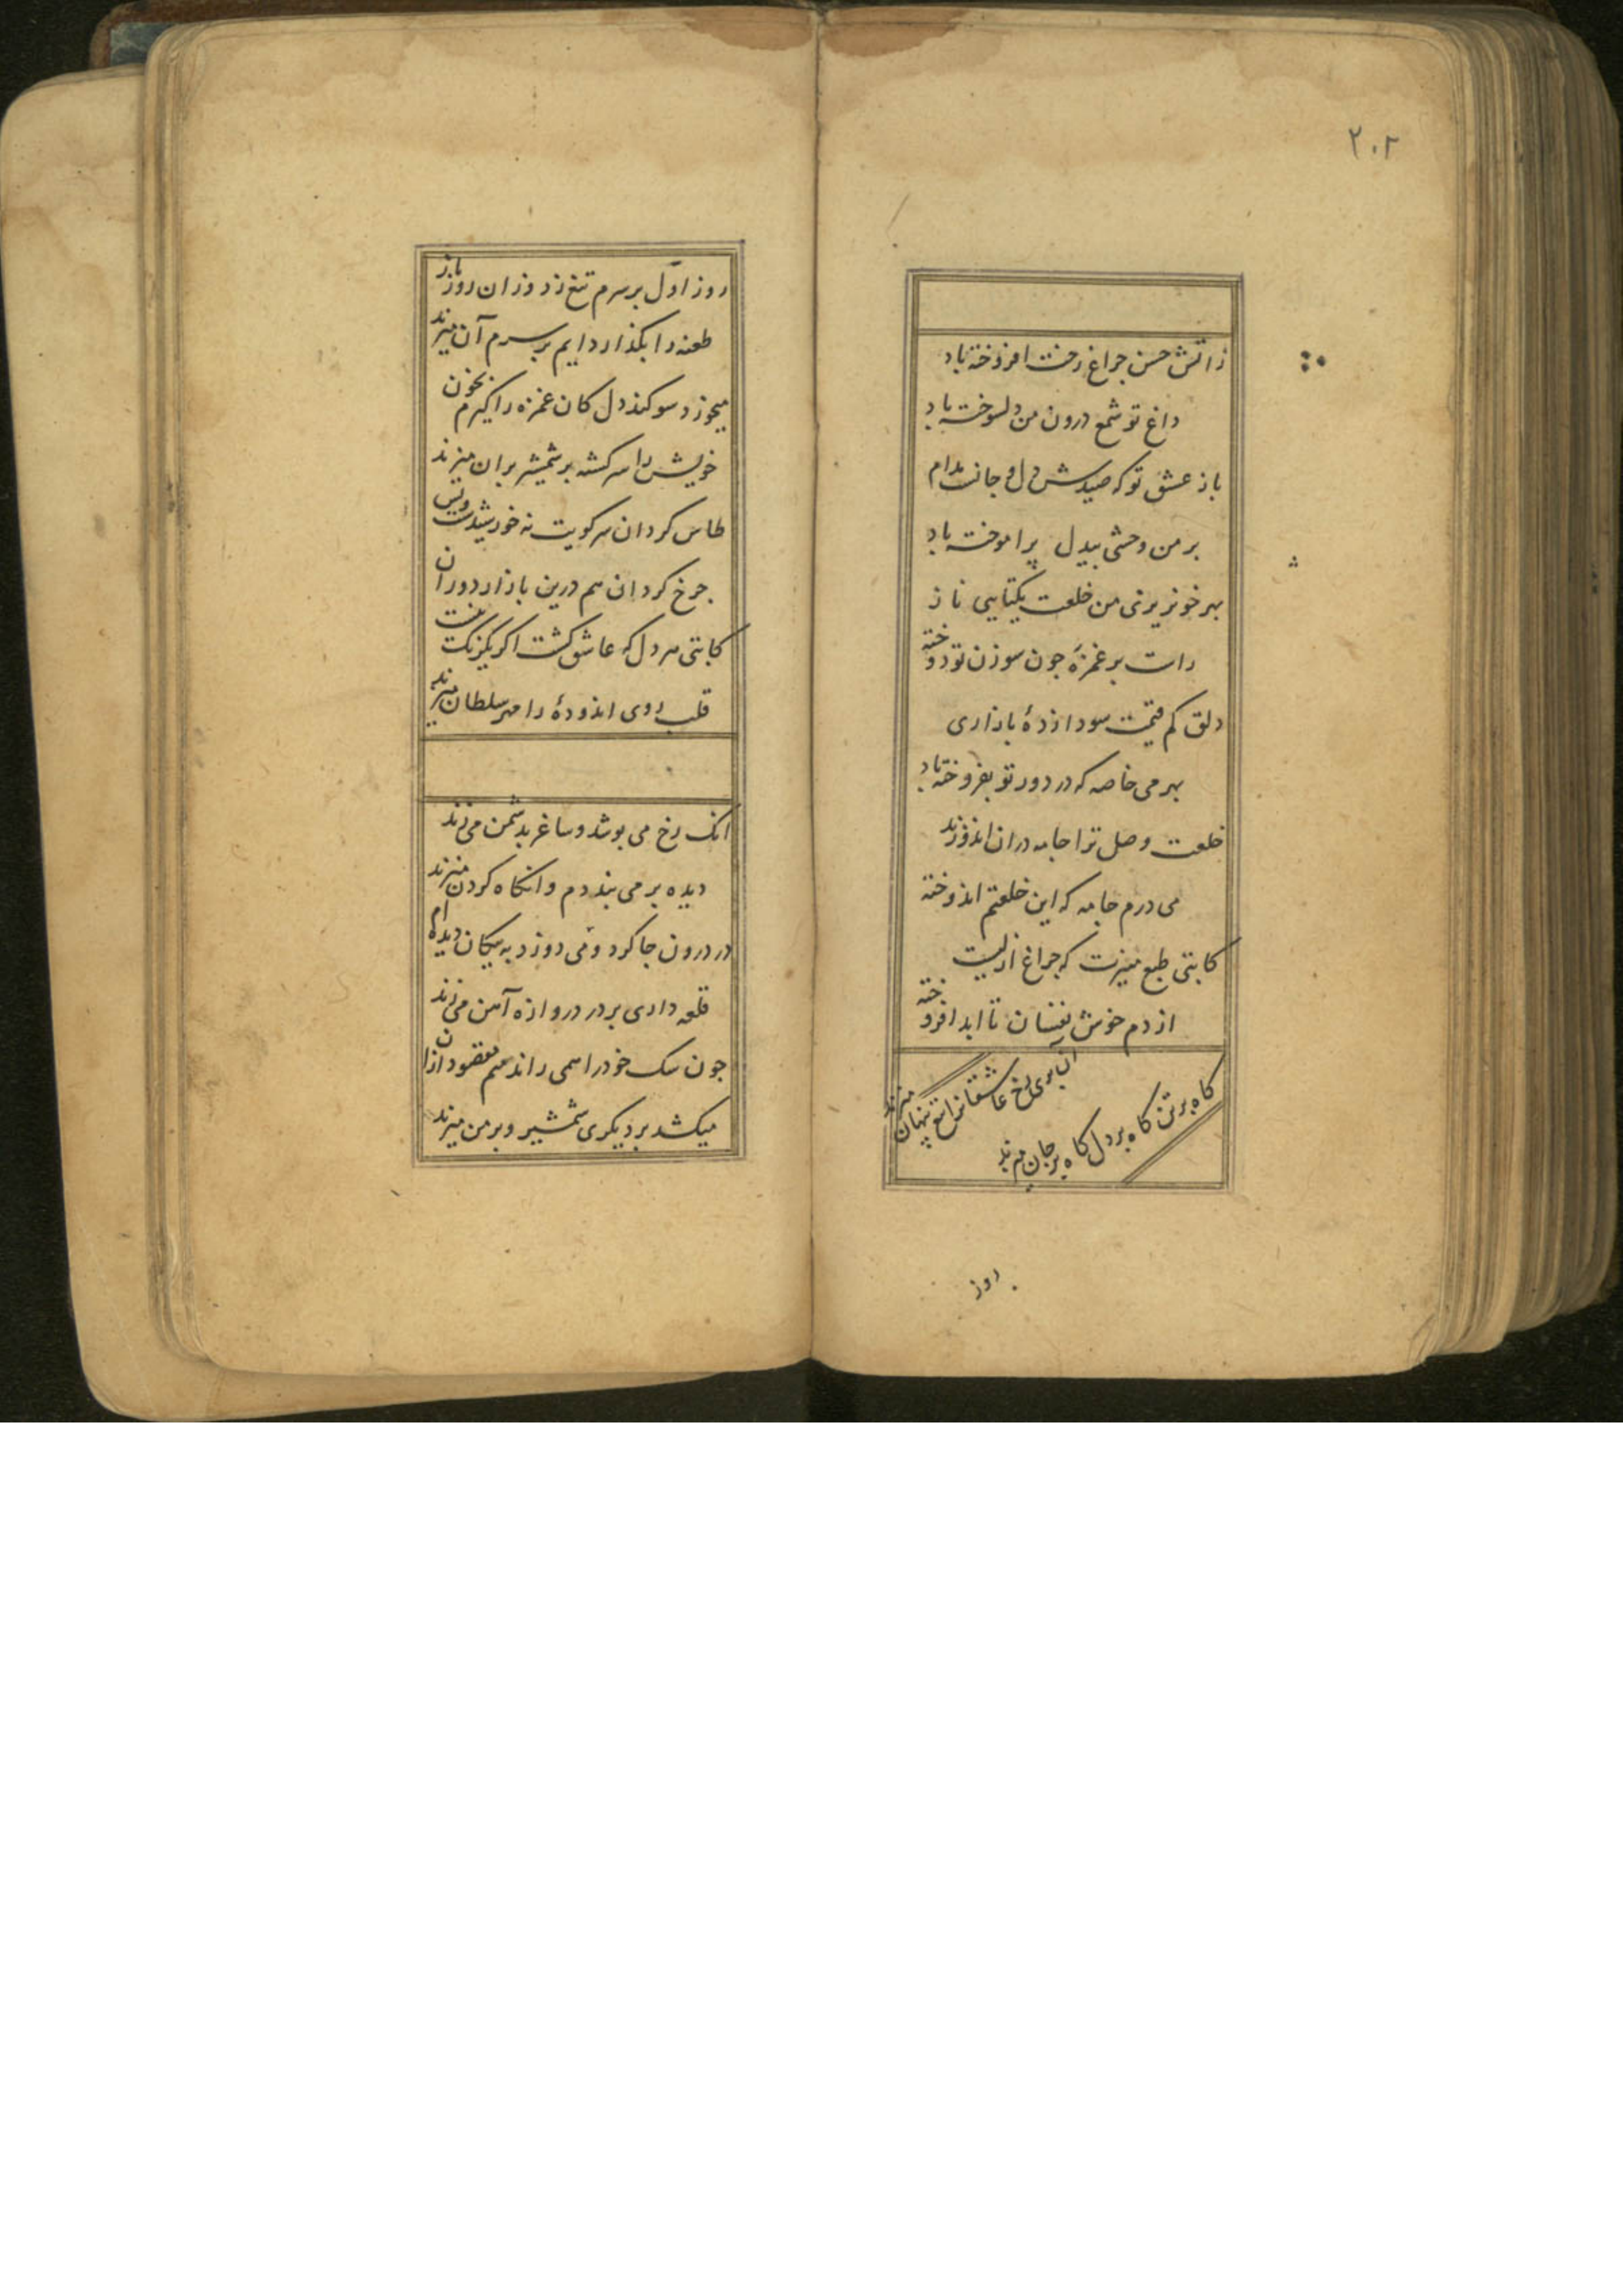 ۲۰۲
ز اتش حسن جراغ رخت افروخته باد
داغ تو شمع درون من دلسوخته باد
باز عشق تو که صیدش دل و جانست مدام
بر من وحشی بیدل پرآموخته باد
بهر خونریزی من خلعت یکتایی ناز
راست بر غمزهٔ جون سوزن تو دوخته
دلق کم قیمت سودازدهٔ بازاری
بهر می خاصه که در دور تو بفروخته باد
خلعت وصل ترا جامه دران اندوزند
می درم جامه که این خلعتم اندوخته
کاتبی طبع منیرت که جراغ ازلیست
از دم خوش نفسان تا ابد افروخته
آن پری رخ عاشقانرا تیغ پنهان میزند
کاه بر تن کاه بر دل کاه بر جان میزند
روز
روز اوّل بر سرم تیغ زد وزان روز باز
طعنه را بکذارد ایم بر سرم آن میزند
میخورد سوکند دل کان غمزه را کیرم بخون
خویش را سرکشته بر شمشیر بران میزند
طاس کردان سر کویت نه خورشیدست و بس
جرخ کردان هم درین بازار دوران
کاتبی هر دل که عاشق کشت اکر یکرنک نیست
قلب روی اندودهٔ را مهر سلطان میزند
انک رخ می پوشد و ساغر بدشمن می زند
دیده بر می بنددم وانکاه کردن میزند
در درون جا کرد و می دوزد به پیکان دیده ام
قلعه داری بر در دروازه آهن می زند
جون سک خود را همی راند منم مقصود ازان
میکشد بر دیکری شمشیر و بر من میزند